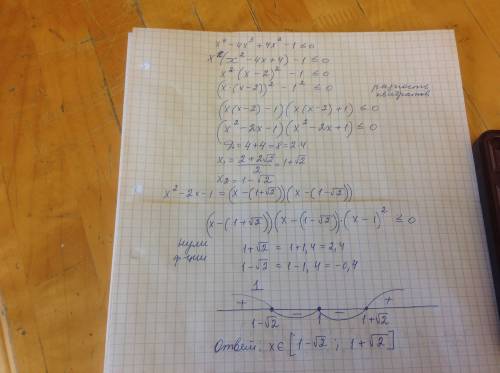 x⁴ - 4x³ + 4x² - 1 ≤ 0
x²(x² - 4x + 4) - 1 ≤ 0
x²(x - 2)² - 1 ≤ 0
(x·(x-2))² - 1² ≤ 0 разность квадратов
(x(x-2) - 1)(x(x-2) + 1) ≤ 0
(x² - 2x - 1)(x² - 2x + 1) ≤ 0
D = 4 + 4 = 8 = 2·4
x₁ = (2 + 2√2)/2 = 1 + √2
x₂ = 1 - √2
x² - 2x - 1 = (x - (1+√2))(x - (1-√2))
(x - (1+√2))(x - (1-√2))·(x - 1)² ≤ 0
нули ф-ции
1 + √2 = 1 + 1,4 = 2,4
1 - √2 = 1 - 1,4 = -0,4
1
+ − − +
1-√2 1 1+√2
Ответ: x ∈ [1 - √2 ; 1 + √2]